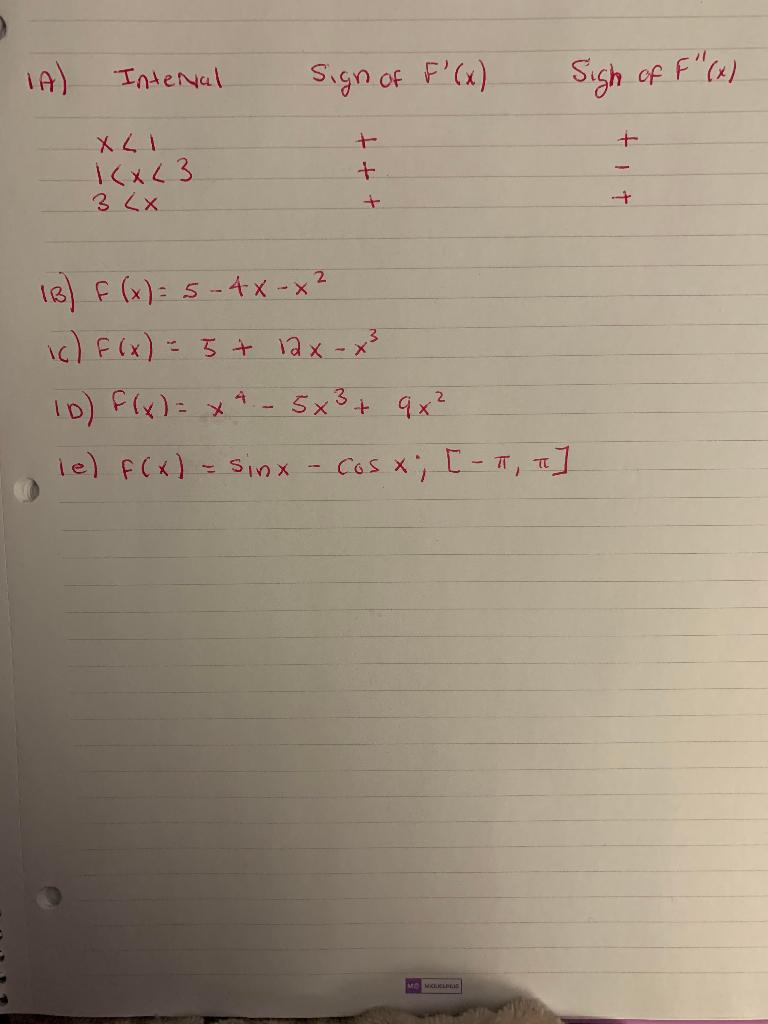 1A) Interval Sign of F'(x) Sigh of F"(x)
x < 1 + +
1 < x < 3 + -
3 < x + +
1B) F(x) = 5 - 4x - x²
1C) F(x) = 5 + 12x - x³
1D) F(x) = x⁴ - 5x³ + 9x²
1e) F(x) = sinx - cos x; [-π, π]